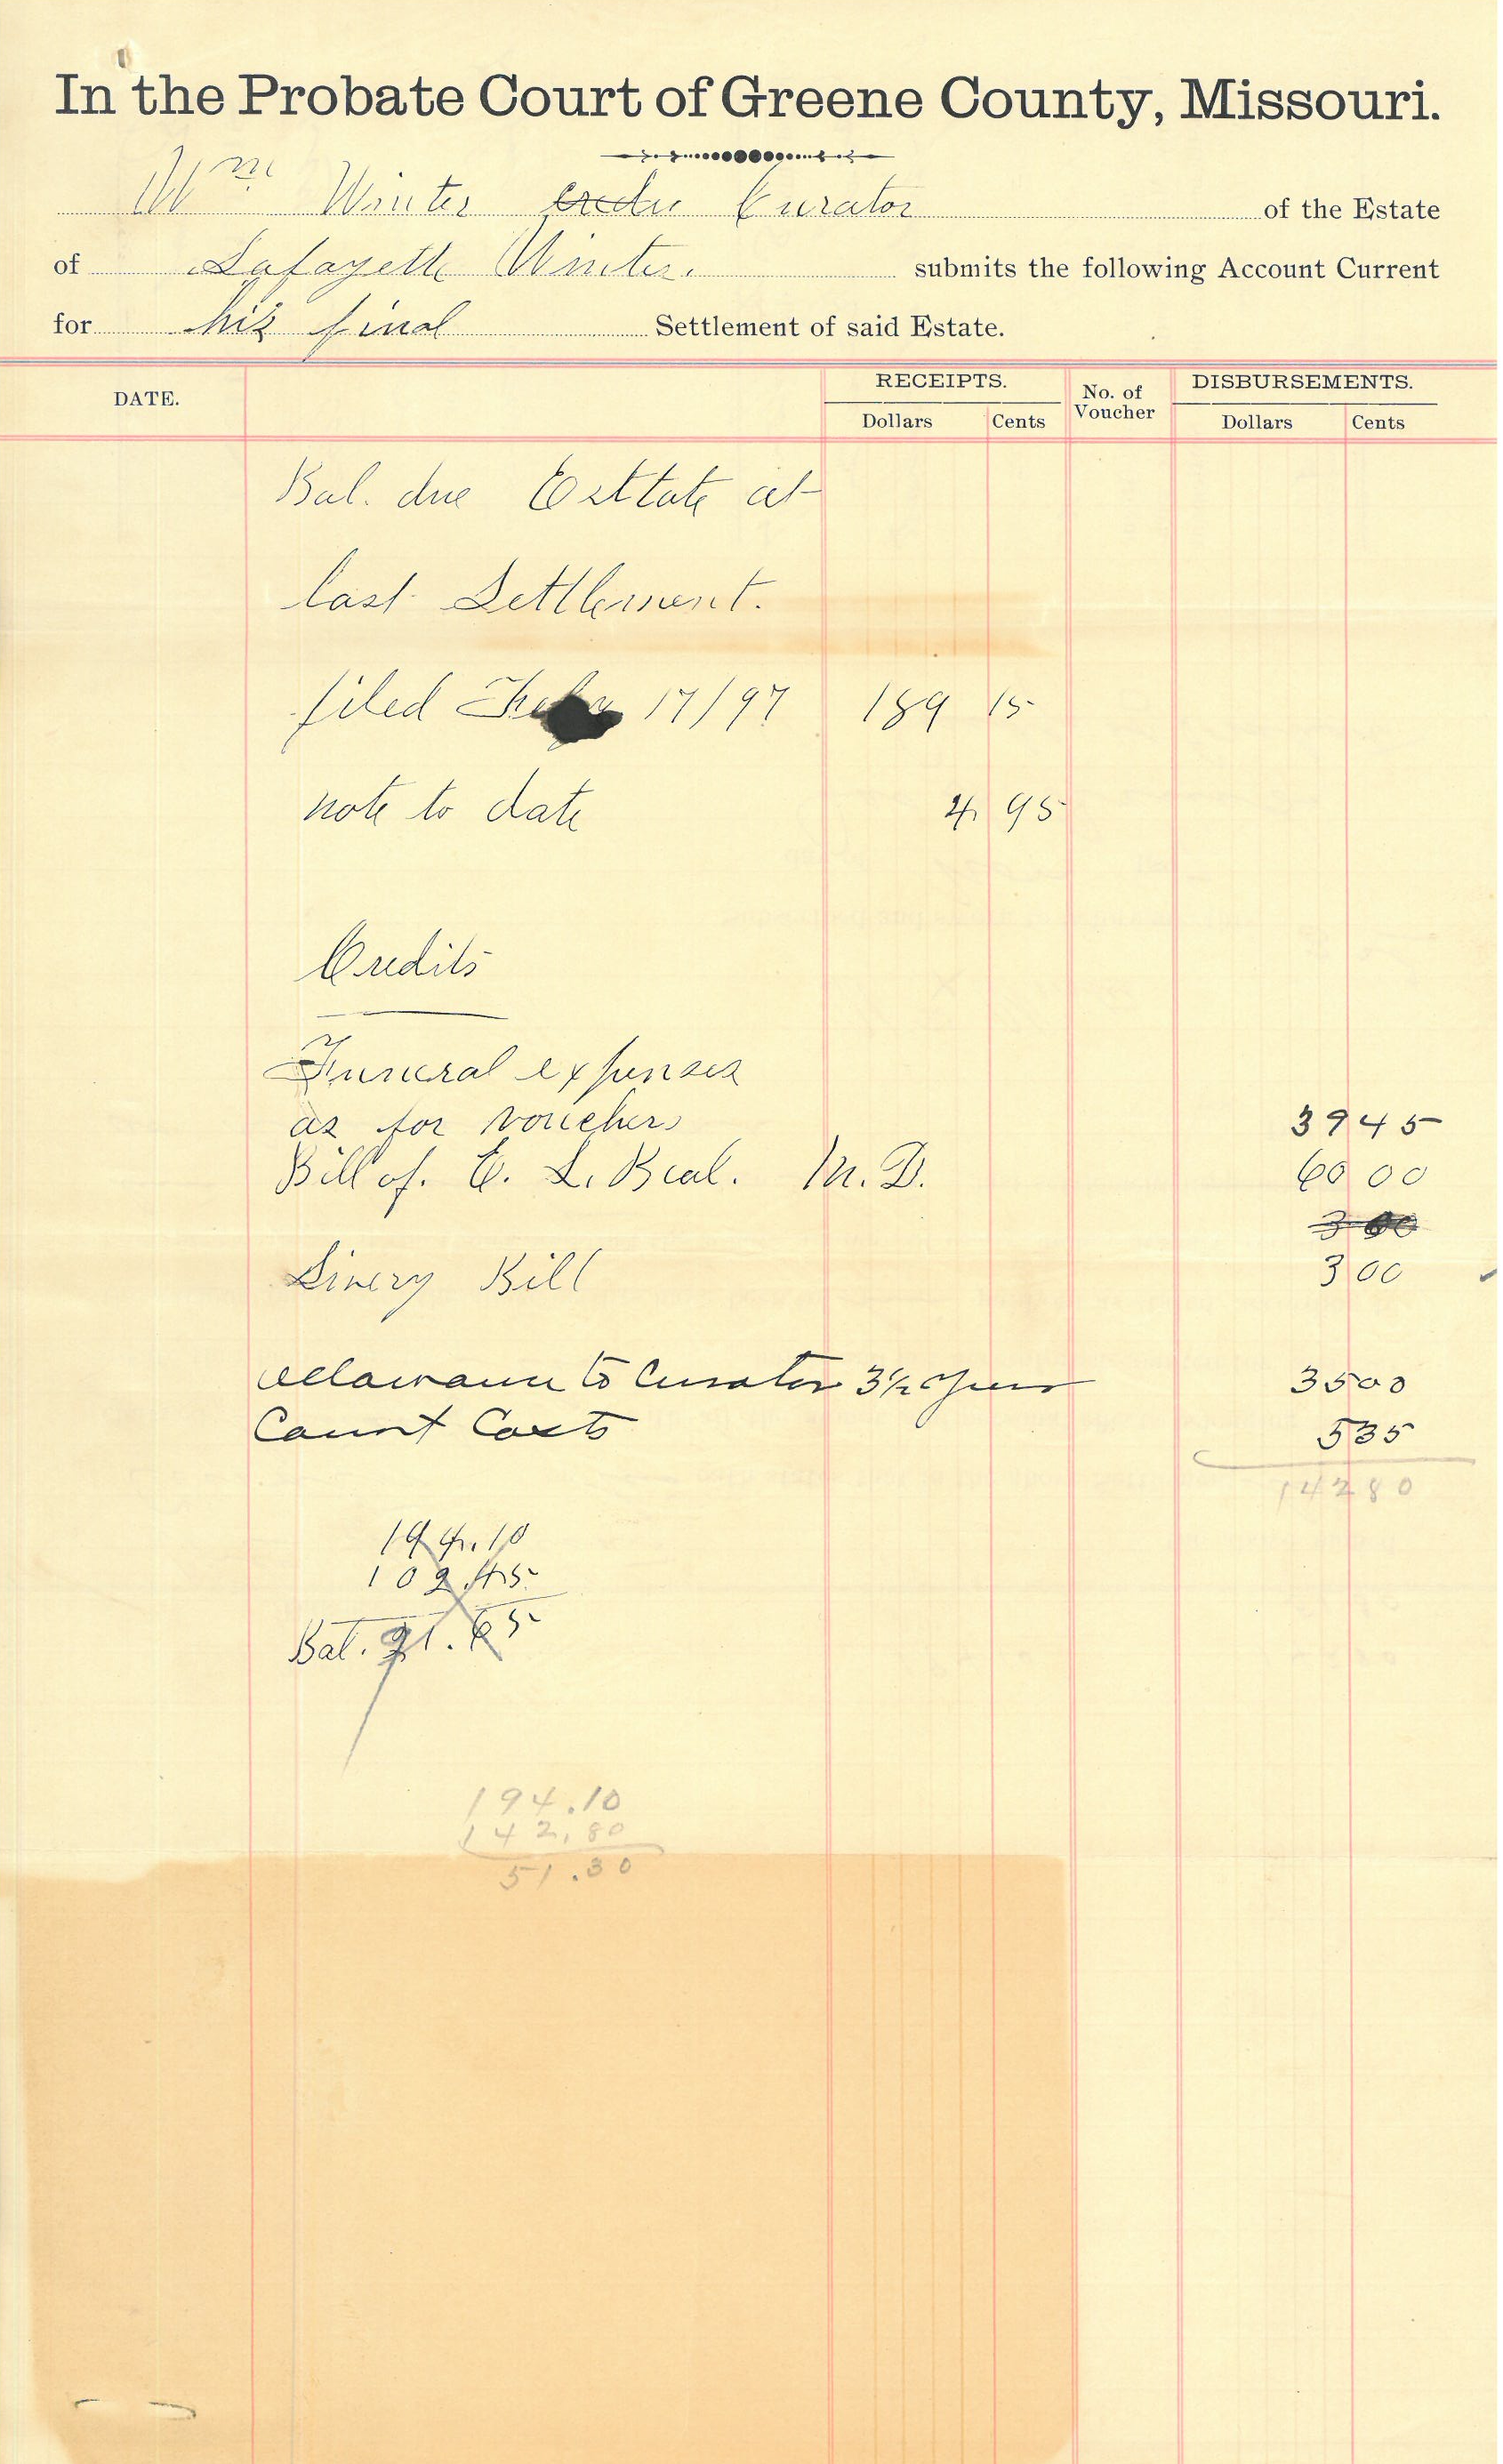 In the Probate Court of Greene County, Missouri.
Wm Winter Curator of the Estate
of Lafayette Winter. submits the following Account Current
for his final Settlement of said Estate.
DATE. RECEIPTS. No. of Voucher DISBURSEMENTS.
Dollars Cents Dollars Cents
Bal. due Esttate at
last Settlement.
filed 17/97 189 15
note to date 4 95
Credits
Funeral expenses
as for vouchers 39 45
Bill of. E. L. Beal. M.D. 60 00
3 00
Livery Bill 3 00
to Curator 3 1/2 years 35 00
Court Costs 5 35
142 80
194.10
102.45
Bal. 91.65
194.10
142.80
51.30